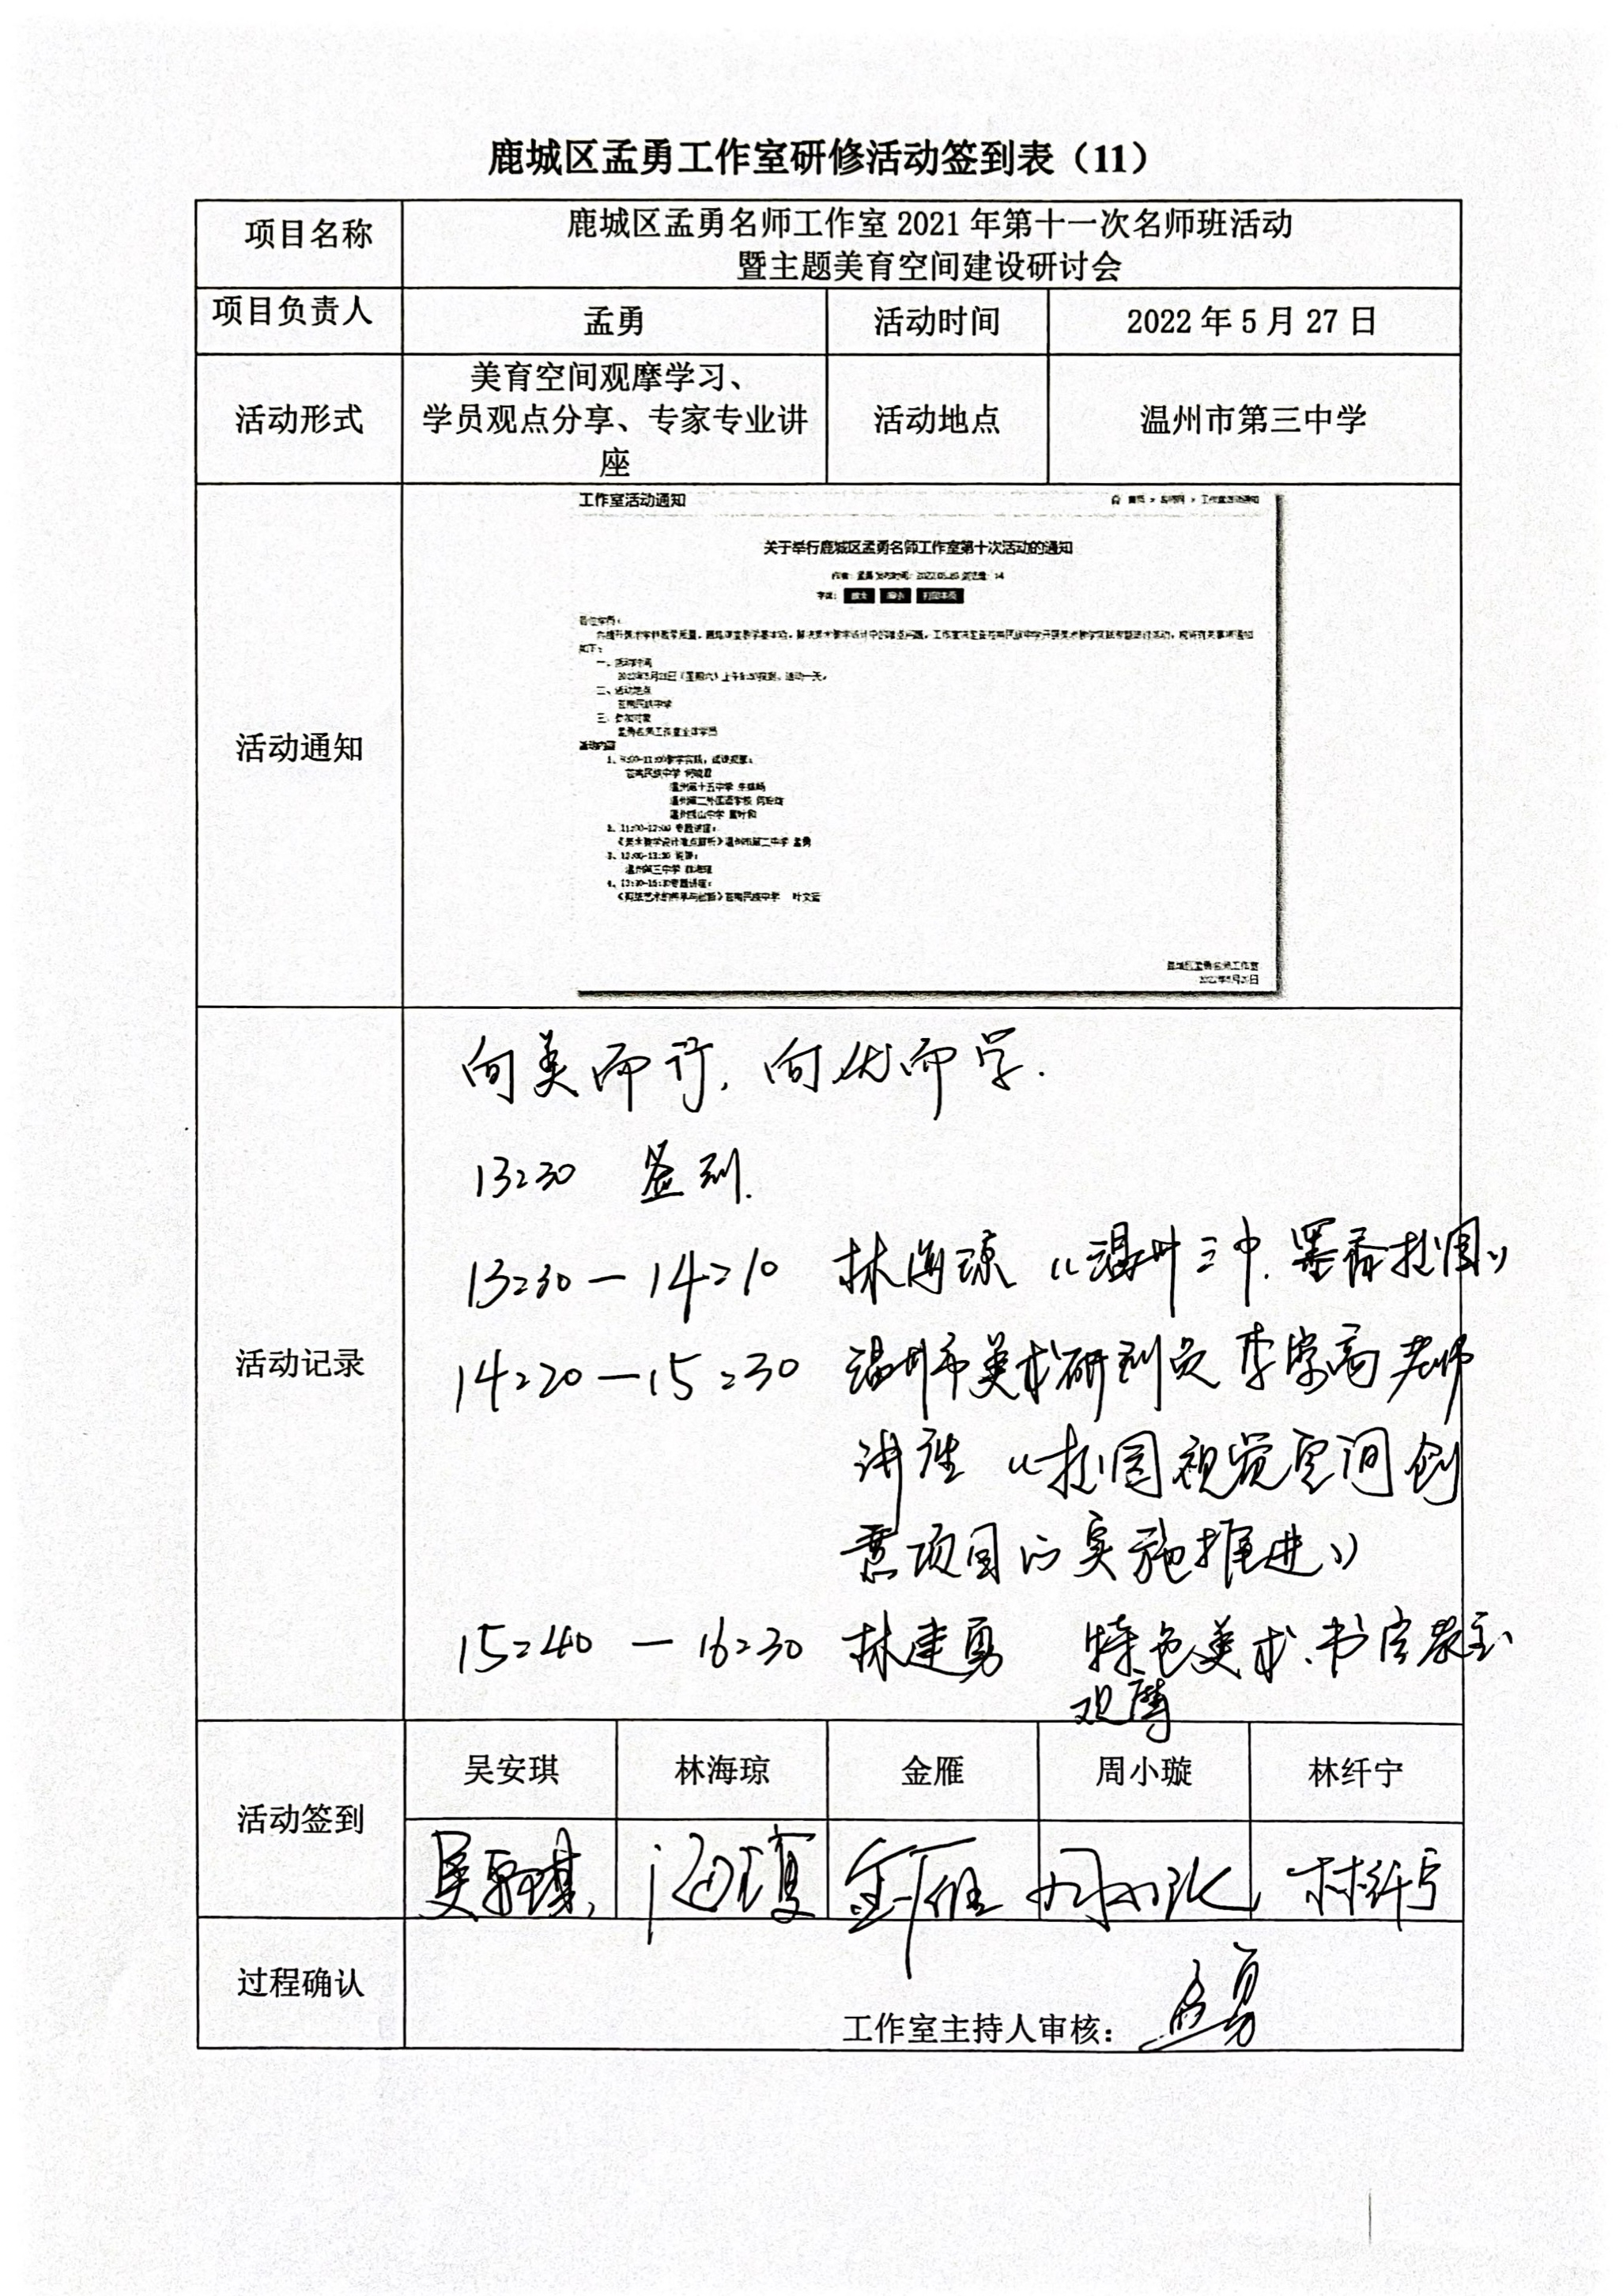 鹿城区孟勇工作室研修活动签到表（11）
项目名称
鹿城区孟勇名师工作室 2021 年第十一次名师班活动
暨主题美育空间建设研讨会
项目负责人
孟勇
活动时间
2022 年 5 月 27 日
活动形式
美育空间观摩学习、
学员观点分享、专家专业讲
座
活动地点
温州市第三中学
活动通知
工作室活动通知
关于举行鹿城区孟勇名师工作室第十次活动的通知
一、活动时间
二、活动地点
苍南民族中学
三、参加对象
孟勇名师工作室全体学员
活动内容
2、11:00-12:00 专题讲座：
《美术教学设计难点解析》温州市第二中学 孟勇
温州第三中学 林海琼
鹿城区孟勇名师工作室
活动记录
向美而行，向优而学.
13:30 签到.
13:30 — 14:10 林海琼《温州三中.墨香校园》
14:20 — 15:30 温州市美术研训员 李学高 老师
讲座《校园视觉空间创
意项目的实施推进》
15:40 — 16:30 林建勇 特色美术、书法教室
观摩
活动签到
吴安琪
林海琼
金雁
周小璇
林纤宁
吴安琪
海琼
金雁
周小璇
林纤宁
过程确认
工作室主持人审核：孟勇